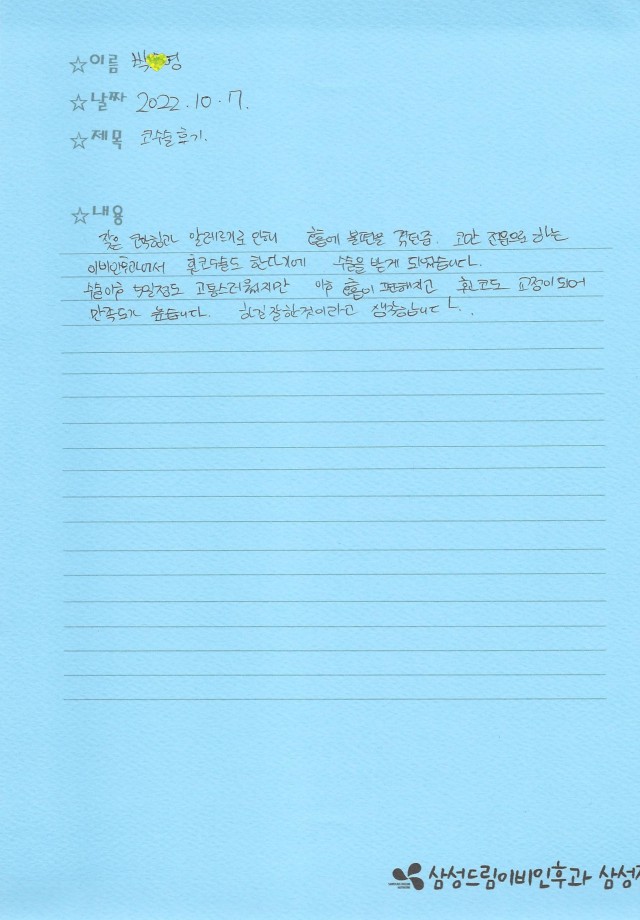 ☆이름 박 영
☆날짜 2022.10.7.
☆제목 코수술후기.
☆내용
잦은 코막힘과 알레르기로 인해 호흡에 불편을 겪던중 코만 전문으로 하는
이비인후과에서 휜코수술도 한다기에 수술을 받게 되었습니다.
수술이후 몇일정도 고통스러웠지만 이후 호흡이 편해지고 휜코도 교정이되어
만족도가 높습니다. 하길잘한것이라고 생각합니다!.
삼성드림이비인후과 삼성